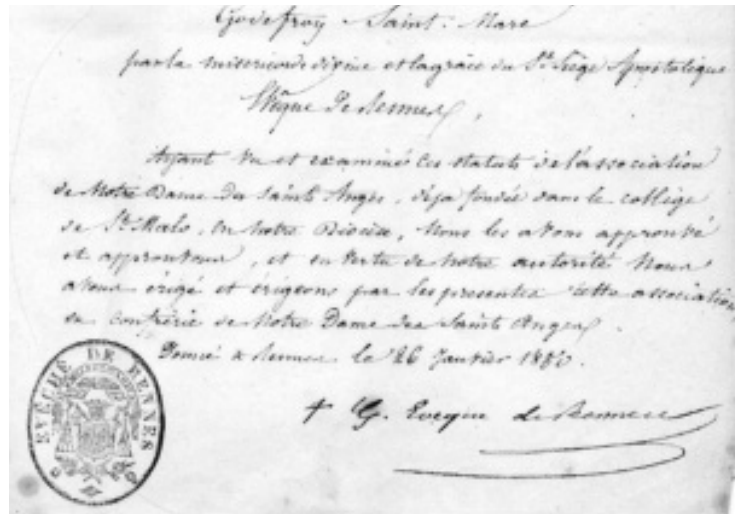 Godefroy Saint-Marc
par la misericorde divine et la grâce du St Siége Apostolique
Evêque de Rennes,
Ayant vu et examiné les statuts de l'association
de Notre Dame des Saints Anges, déja fondée dans le collège
de St Malo, en notre Diocèse, Nous les avons approuvé
et approuvons, et en vertu de notre autorité Nous
avons érigé et érigeons par les presentes cette association
en confrérie de Notre Dame des Saints Anges.
Donné à Rennes le 26 Janvier
+ G. Evêque de Rennes
EVÊCHÉ DE RENNES